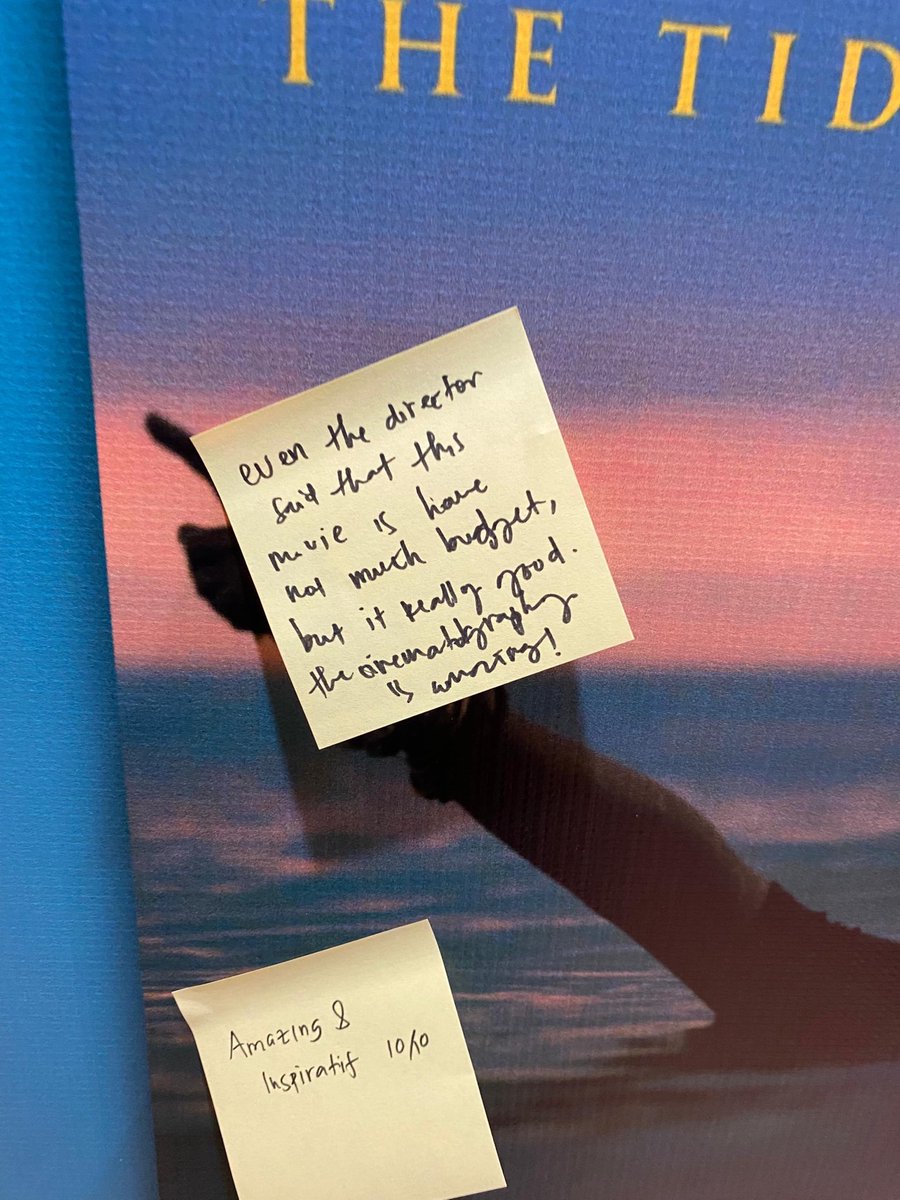 THE TID
even the director
said that this
movie is have
not much budget,
but it really good.
the cinematography
is amazing!
Amazing &
Inspiratif 10/10